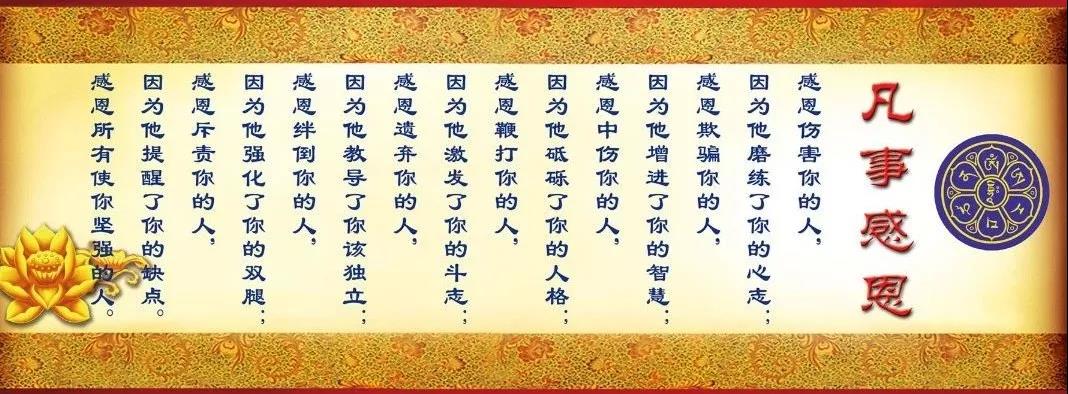 凡事感恩
感恩伤害你的人，
因为他磨练了你的心志；
感恩欺骗你的人，
因为他增进了你的智慧；
感恩中伤你的人，
因为他砥砾了你的人格；
感恩鞭打你的人，
因为他激发了你的斗志；
感恩遗弃你的人，
因为他教导了你该独立；
感恩绊倒你的人，
因为他强化了你的双腿；
感恩斥责你的人，
因为他提醒了你的缺点。
感恩所有使你坚强的人。